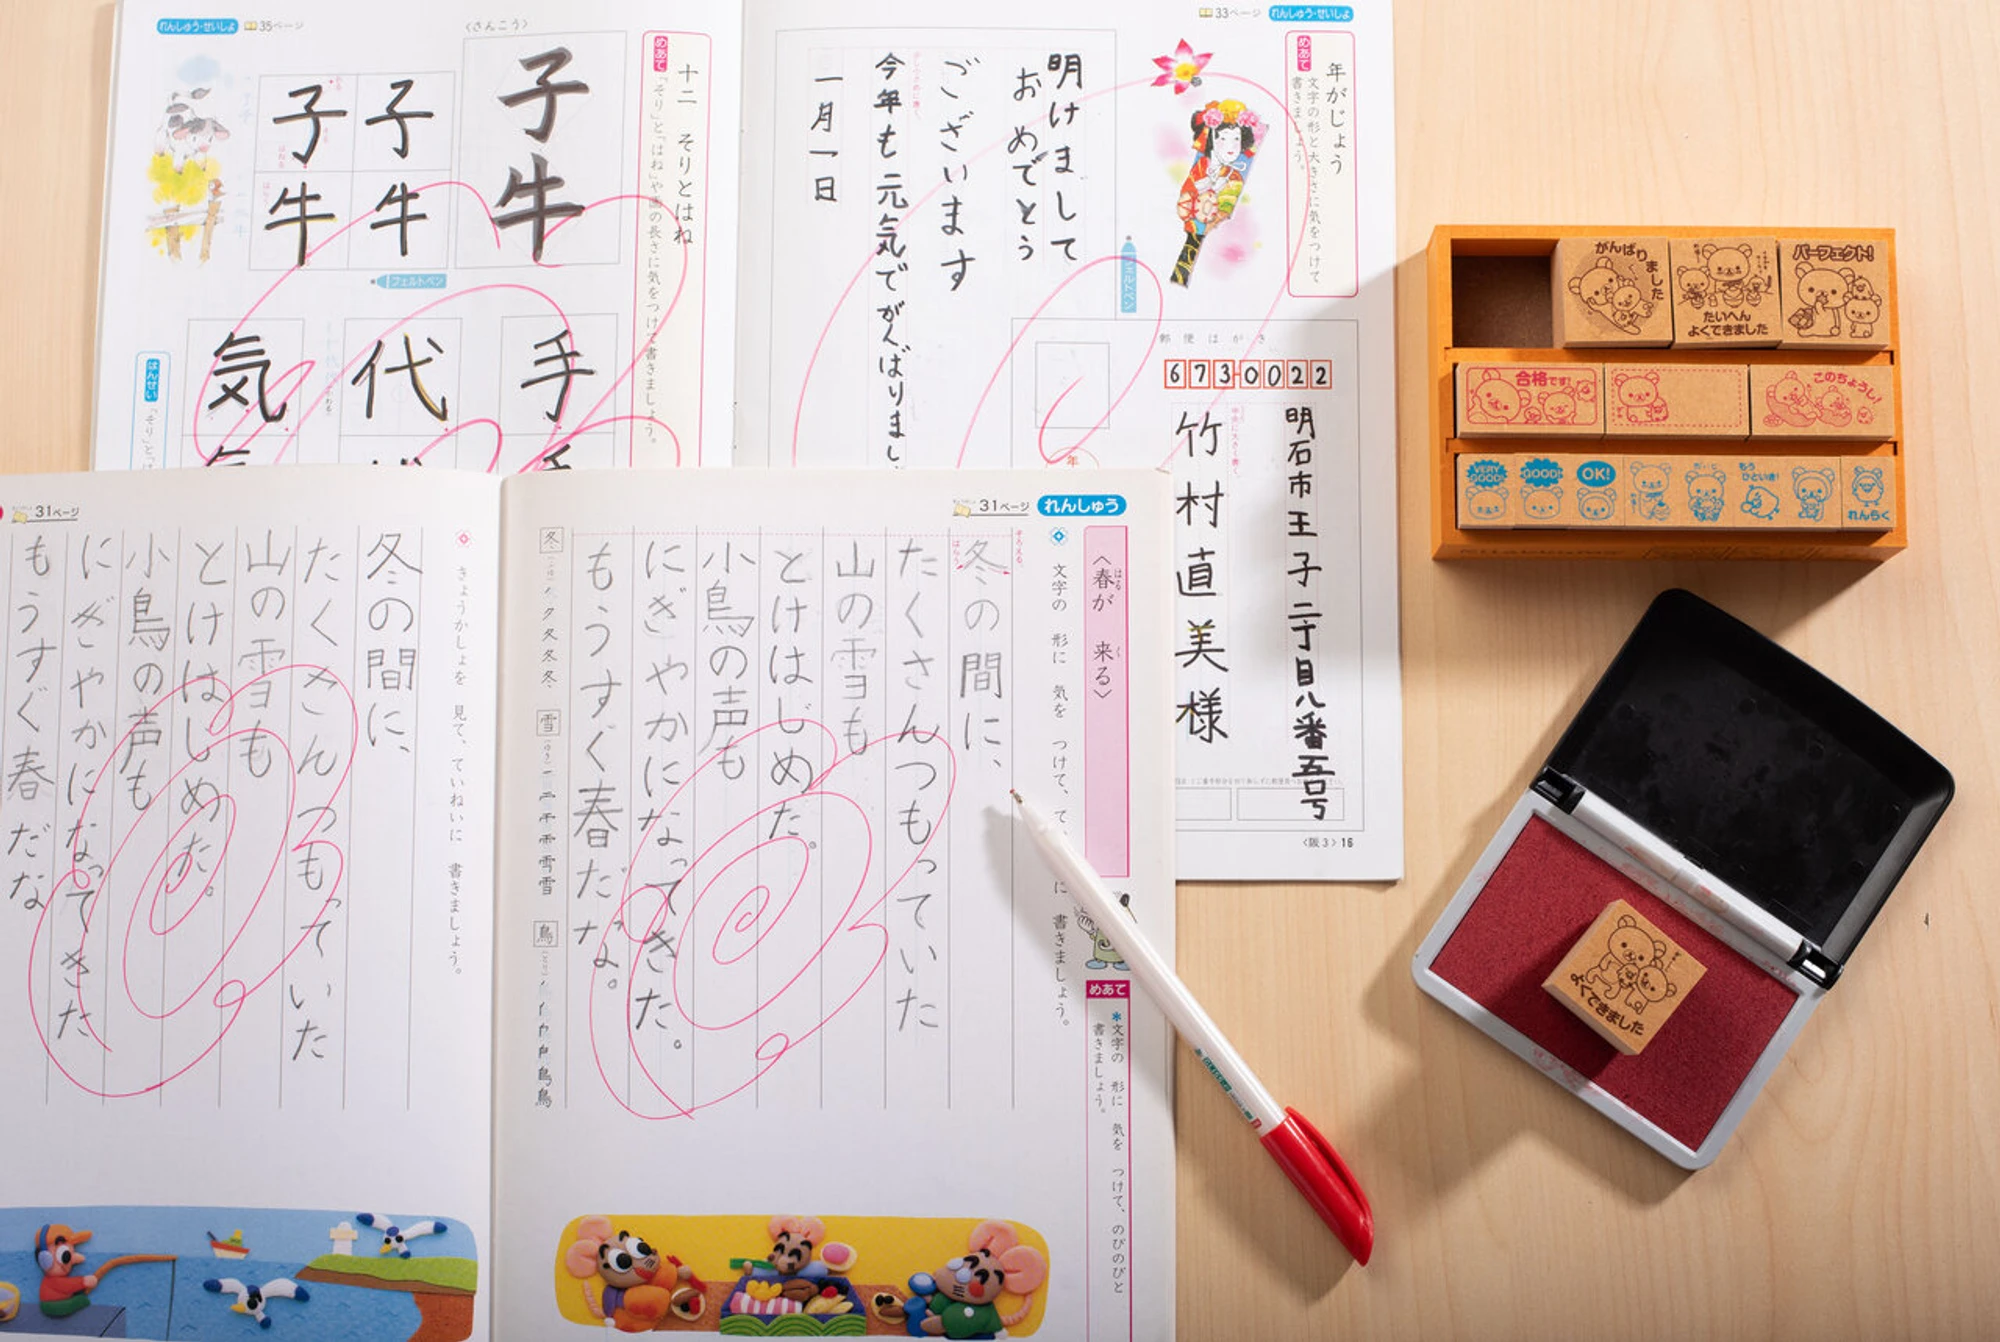 れんしゅう・せいしょ
35ページ
〈さんこう〉
めあて
十二 そりとはね
「そり」と「はね」や画の長さに気をつけて書きましょう。
子牛
子牛
子牛
フェルトペン
手
代
気
はんせい
33ページ
れんしゅう・せいしょ
めあて
年がじょう
文字の形と大きさに気をつけて
書きましょう。
明けまして
おめでとう
ございます
今年も元気でがんばりまし
一月一日
フェルトペン
郵便はがき
673-0022
明石市王子二丁目八番五号
竹村直美様
年
〈阪3〉16
31ページ
れんしゅう
〈春が 来る〉
はる
く
文字の 形に 気を つけて、て
に 書きましょう。
めあて
文字の 形に 気を つけて、のびのびと
書きましょう。
そろえる。
冬の間に、
たくさんつもっていた
山の雪も
とけはじめた。
小鳥の声も
にぎやかになってきた。
もうすぐ春だな。
冬
ク夂冬冬
雪
鳥
31ページ
きょうかしょを 見て、ていねいに 書きましょう。
冬の間に、
たくさんつもっていた
山の雪も
とけはじめた。
小鳥の声も
にぎやかになってきた
もうすぐ春だな
がんばりました
たいへん
よくできました
パーフェクト!
合格です!
このちょうし!
VERY GOOD!
GOOD!
OK!
もう
ひといき!
れんらく
よくできました